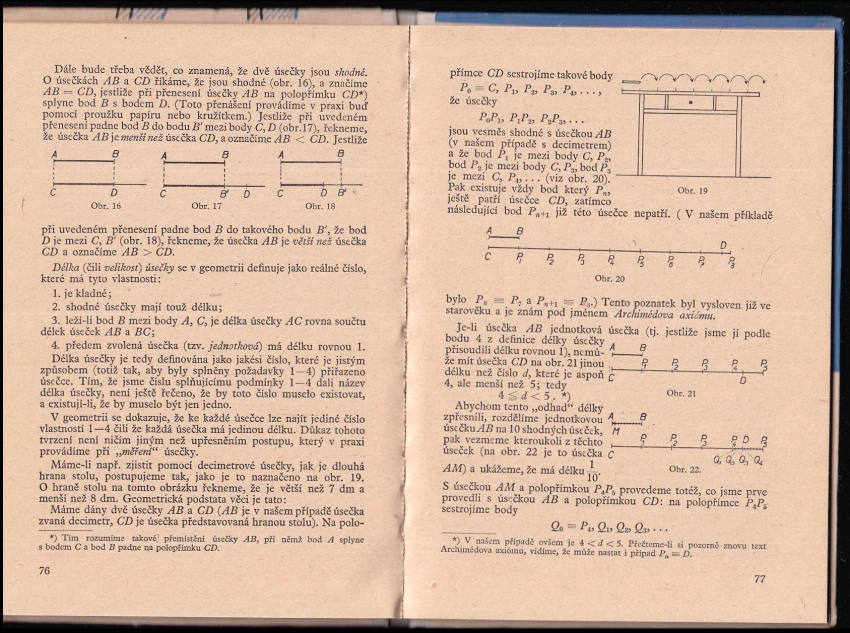 Dále bude třeba vědět, co znamená, že dvě úsečky jsou shodné.
O úsečkách AB a CD říkáme, že jsou shodné (obr. 16), a značíme
AB = CD, jestliže při přenesení úsečky AB na polopřímku CD*)
splyne bod B s bodem D. (Toto přenášení provádíme v praxi buď
pomocí proužku papíru nebo kružítkem.) Jestliže při uvedeném
přenesení padne bod B do bodu B' mezi body C, D (obr.17), řekneme,
že úsečka AB je menší než úsečka CD, a označíme AB < CD. Jestliže
A B A B A B
C D C B' D C D B'
Obr. 16 Obr. 17 Obr. 18
při uvedeném přenesení padne bod B do takového bodu B', že bod
D je mezi C, B' (obr. 18), řekneme, že úsečka AB je větší než úsečka
CD a označíme AB > CD.
Délka (čili velikost) úsečky se v geometrii definuje jako reálné číslo,
které má tyto vlastnosti:
1. je kladné;
2. shodné úsečky mají touž délku;
3. leží-li bod B mezi body A, C, je délka úsečky AC rovna součtu
délek úseček AB a BC;
4. předem zvolená úsečka (tzv. jednotková) má délku rovnou 1.
Délka úsečky je tedy definována jako jakési číslo, které je jistým
způsobem (totiž tak, aby byly splněny požadavky 1—4) přiřazeno
úsečce. Tím, že jsme číslu splňujícímu podmínky 1—4 dali název
délka úsečky, není ještě řečeno, že by toto číslo muselo existovat,
a existují-li, že by muselo být jen jedno.
V geometrii se dokazuje, že ke každé úsečce lze najít jediné číslo
vlastností 1—4 čili že každá úsečka má jedinou délku. Důkaz tohoto
tvrzení není ničím jiným než upřesněním postupu, který v praxi
provádíme při „měření“ úsečky.
Máme-li např. zjistit pomocí decimetrové úsečky, jak je dlouhá
hrana stolu, postupujeme tak, jako je to naznačeno na obr. 19.
O hraně stolu na tomto obrázku řekneme, že je větší než 7 dm a
menší než 8 dm. Geometrická podstata věci je tato:
Máme dány dvě úsečky AB a CD (AB je v našem případě úsečka
zvaná decimetr, CD je úsečka představovaná hranou stolu). Na polo-
*) Tím rozumíme takové přemístění úsečky AB, při němž bod A splyne
s bodem C a bod B padne na polopřímku CD.
76
přímce CD sestrojíme takové body
P₀ = C, P₁, P₂, P₃, P₄, . . . ,
že úsečky
P₀P₁, P₁P₂, P₂P₃, . . .
jsou vesměs shodné s úsečkou AB
(v našem případě s decimetrem)
a že bod P₁ je mezi body C, P₂,
bod P₂ je mezi body C, P₃, bod P₃
je mezi C, P₄, . . . (viz obr. 20).
Pak existuje vždy bod který Pₙ,
ještě patří úsečce CD, zatímco
následující bod Pₙ₊₁ již této úsečce nepatří. ( V našem příkladě
Obr. 19
A B
D
C P₁ P₂ P₃ P₄ P₅ P₆ P₇ P₈
Obr. 20
bylo Pₙ ≡ P₇ a Pₙ₊₁ ≡ P₈.) Tento poznatek byl vysloven již ve
starověku a je znám pod jménem Archimédova axiómu.
Je-li úsečka AB jednotková úsečka (tj. jestliže jsme jí podle
bodu 4 z definice délky úsečky
přisoudili délku rovnou 1), nemů-
že mít úsečka CD na obr. 21 jinou
délku než číslo d, které je aspoň
4, ale menší než 5; tedy
4 ≦ d < 5 . *)
A B
P₁ P₂ P₃ P₄ P₅
C D
Obr. 21
Abychom tento „odhad“ délky
zpřesnili, rozdělíme jednotkovou
úsečku AB na 10 shodných úseček,
pak vezmeme kteroukoli z těchto
úseček (na obr. 22 je to úsečka
AM) a ukážeme, že má délku 1/10.
A B
M
P₁ P₂ P₃ P₄ D P₅
C
Obr. 22.
S úsečkou AM a polopřímkou P₄P₅ provedeme totéž, co jsme prve
provedli s úsečkou AB a polopřímkou CD: na polopřímce P₄P₅
sestrojíme body
Q₀ = P₄, Q₁, Q₂, Q₃, . . .
*) V našem případě ovšem je 4 < d < 5. Přečteme-li si pozorně znovu text
Archimédova axiómu, vidíme, že může nastat i případ Pₙ = D.
77